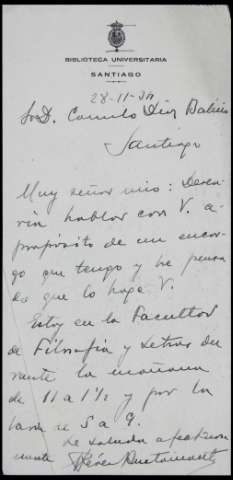 BIBLIOTECA UNIVERSITARIA
SANTIAGO
28-11-30
Sr. D. Camilo Díaz Baliño
Santiago
Muy señor mio: Desea-
ría hablar con V. a
propósito de un encar-
go que tengo y he pensa
do que lo haga V.
Estoy en la Facultad
de Filosofía y Letras du
rante la mañana
de 11 a 1½ y por la
tarde de 5 a 9.
Le saluda afectuosa
mente Bustamante